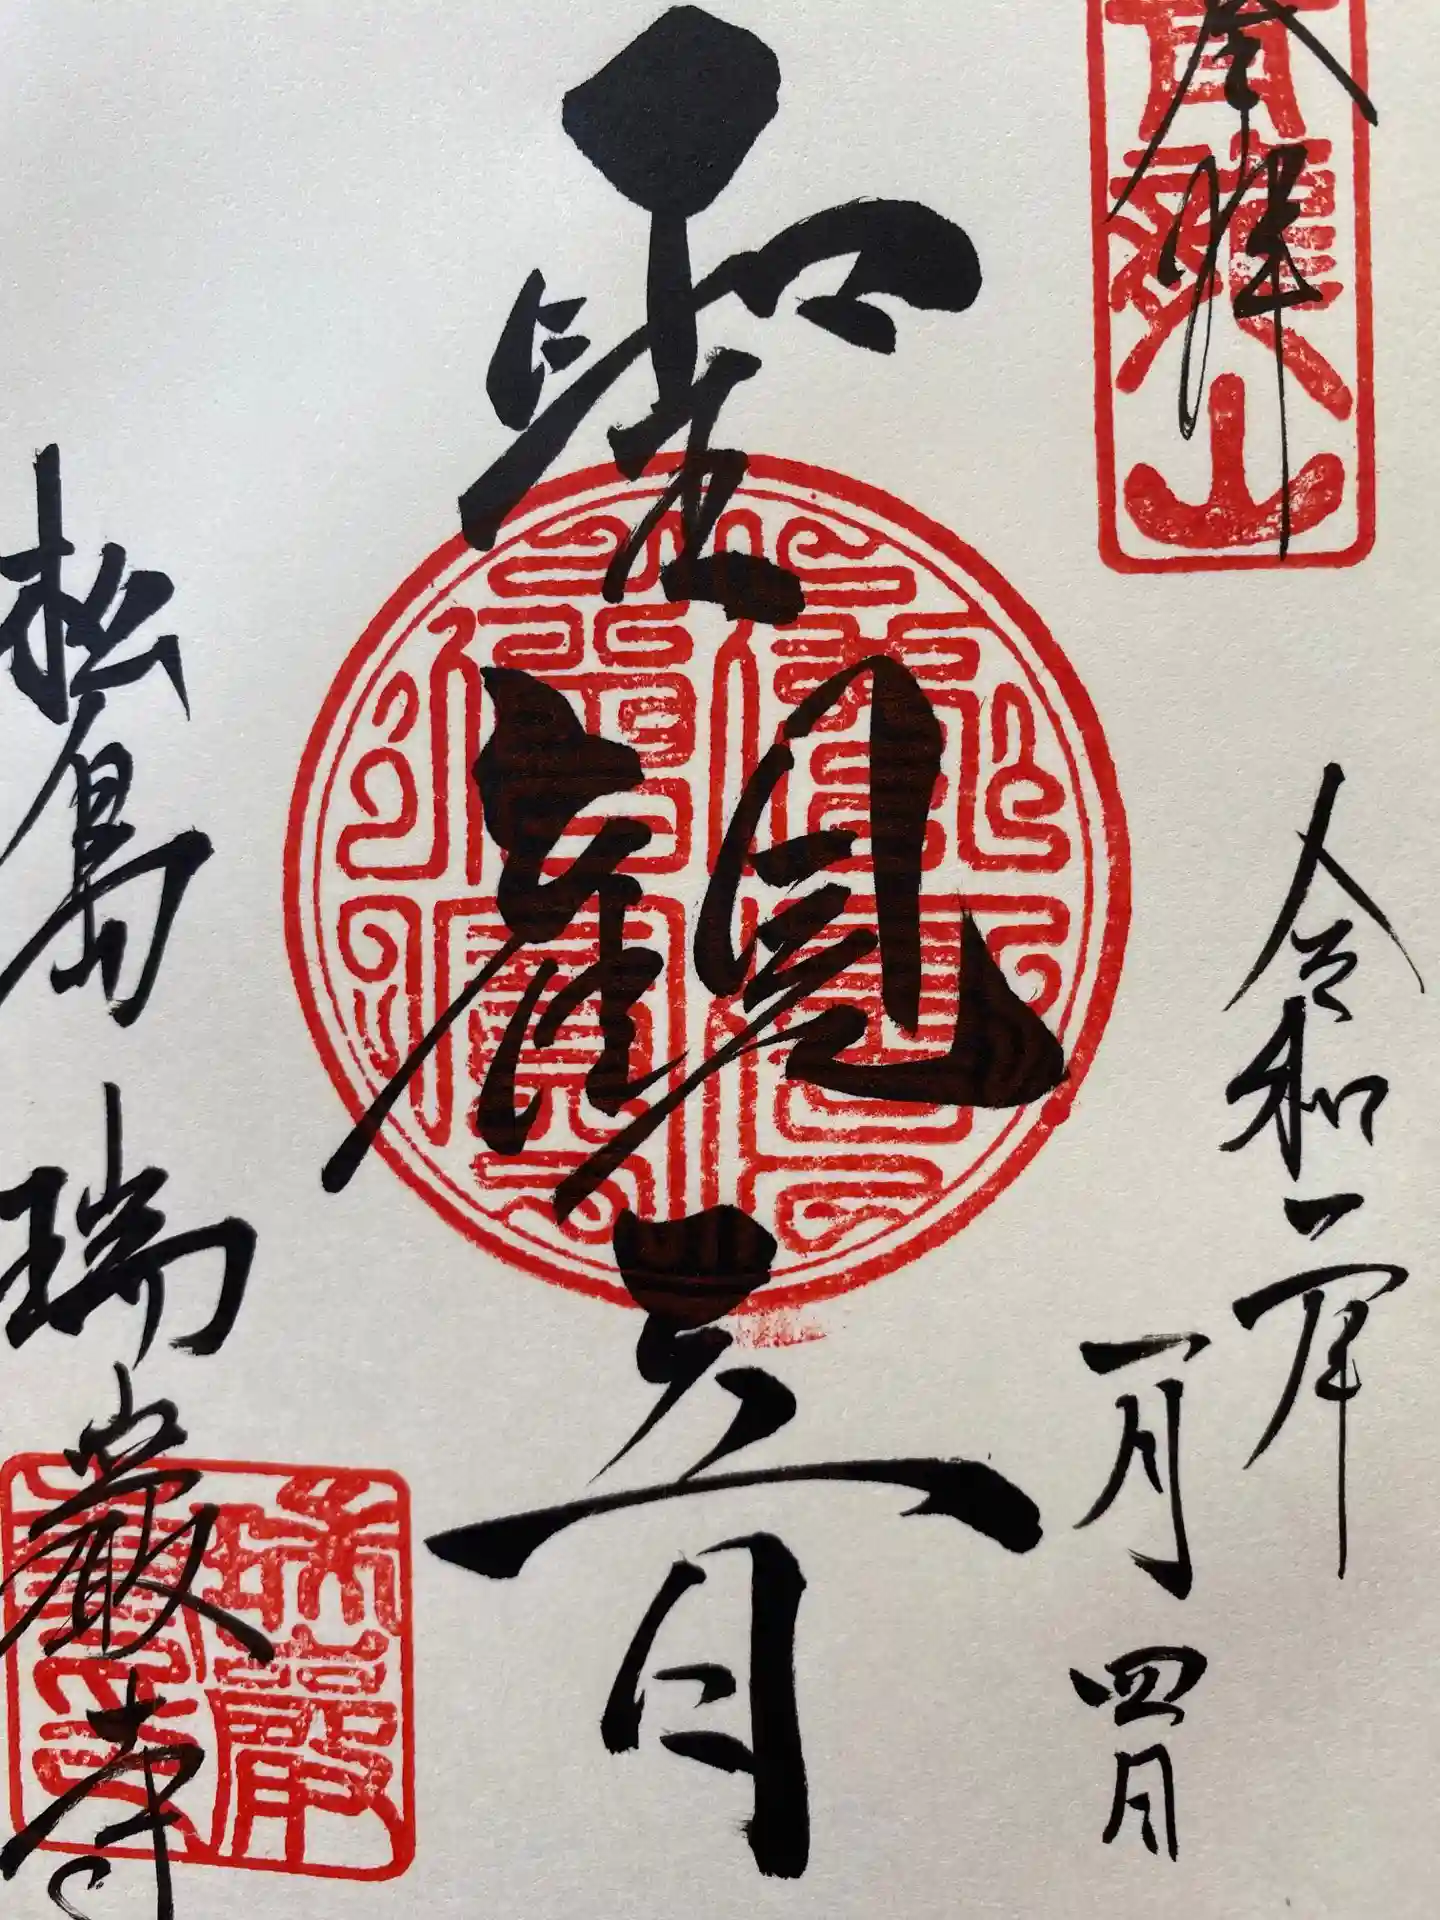 奉拝
青龍山
令和二年
一月四日
聖観音
松島 瑞巌寺